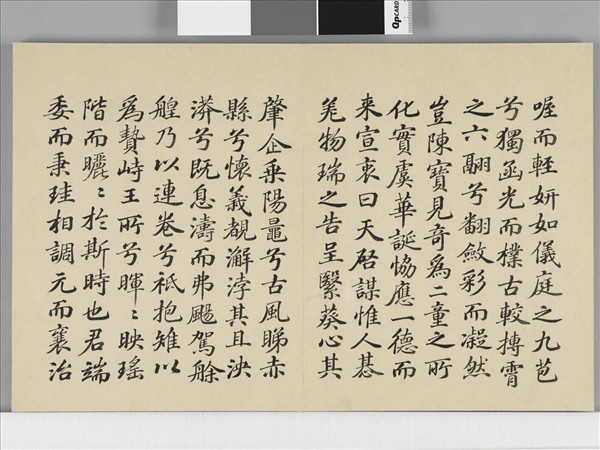 喔而輊妍如儀庭之九苞
兮獨函光而樸古較摶霄
之六翮兮翻斂彩而凝然
豈陳寶見奇爲二童之所
化實虞華誕恊應一德而
来宣衷曰天啓謀惟人惎
羌物瑞之告呈繄葵心其
肇企乗陽鼂兮古風睇赤
縣兮懷義覩澥浡其且泱
漭兮既息濤而弗颺駕艅
艎乃以連卷兮祗抱雉以
爲贄峙王所兮暉〻映瑤
階而曬〻於斯時也君端
委而秉珪相調元而襄治
QPCARD